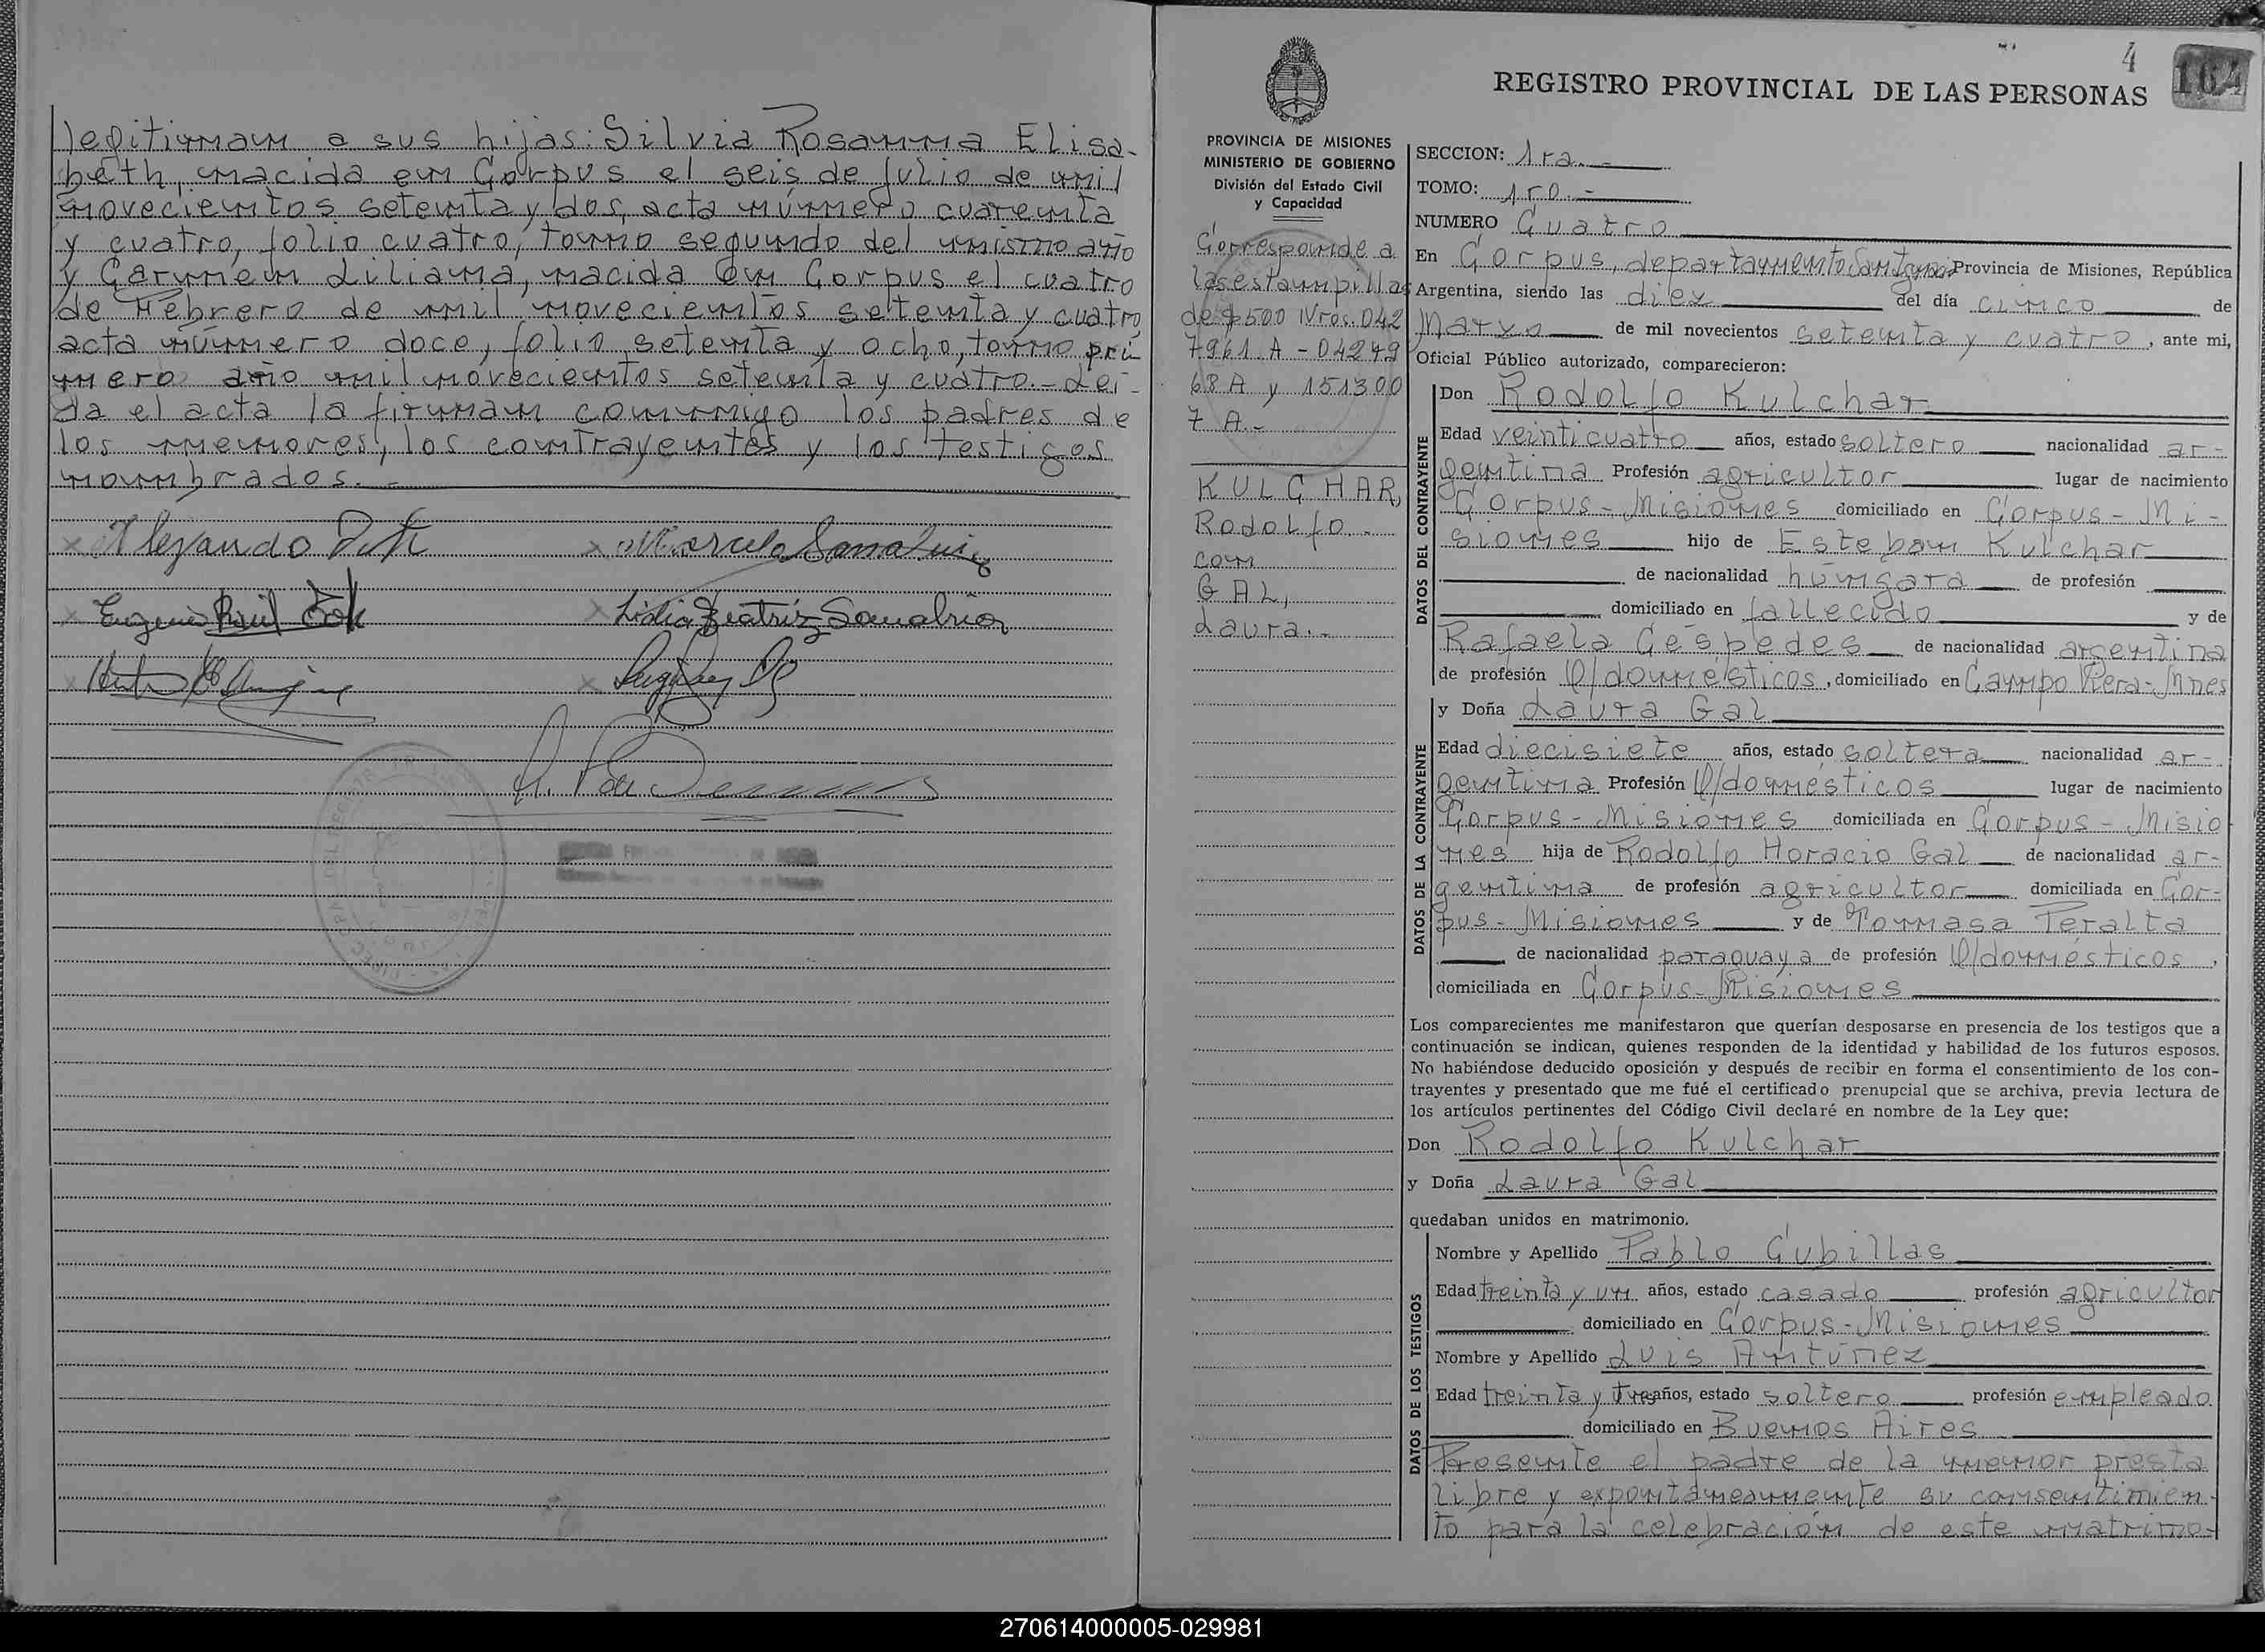 legitiman a sus hijas: Silvia Rosanna Elisa-
beth, nacida en Corpus el seis de julio de mil
novecientos setenta y dos, acta número cuarenta
y cuatro, folio cuatro, tomo segundo del mismo año
y Carmen Liliana, nacida en Corpus el cuatro
de Febrero de mil novecientos setenta y cuatro
acta número doce, folio setenta y ocho, tomo pri
mero año mil novecientos setenta y cuatro.- Leí-
da el acta la firman conmigo los padres de
los menores, los contrayentes y los testigos
nombrados.-
Alejandro
Eugenio Raúl
Lidia Beatriz Sanabria
4
164
REGISTRO PROVINCIAL DE LAS PERSONAS
PROVINCIA DE MISIONES
MINISTERIO DE GOBIERNO
División del Estado Civil
y Capacidad
Corresponde a
las estampillas
de $500 Nros. 042
7961 A - 04279
68 A y 151300
7 A.-
KULCHAR,
Rodolfo.-
con
GAL,
Laura.-
SECCION: 1ra.-
TOMO: 1ro.-
NUMERO Cuatro
En Corpus, departamento San Ignacio Provincia de Misiones, República
Argentina, siendo las diez del día cinco de
Marzo de mil novecientos setenta y cuatro, ante mi,
Oficial Público autorizado, comparecieron:
DATOS DEL CONTRAYENTE
Don Rodolfo Kulchar
Edad veinticuatro años, estado soltero nacionalidad ar-
gentina Profesión agricultor lugar de nacimiento
Corpus - Misiones domiciliado en Corpus - Mi-
siones hijo de Esteban Kulchar
de nacionalidad húngara de profesión
domiciliado en fallecido y de
Rafaela Céspedes de nacionalidad argentina
de profesión Q/domésticos, domiciliado en Campo Viera-Mnes
DATOS DE LA CONTRAYENTE
y Doña Laura Gal
Edad diecisiete años, estado soltera nacionalidad ar-
gentina Profesión Q/domésticos lugar de nacimiento
Corpus - Misiones domiciliada en Corpus - Misio
nes hija de Rodolfo Horacio Gal de nacionalidad ar-
gentina de profesión agricultor domiciliada en Cor-
pus - Misiones y de Tomasa Peralta
de nacionalidad paraguaya de profesión Q/domésticos,
domiciliada en Corpus - Misiones
Los comparecientes me manifestaron que querían desposarse en presencia de los testigos que a
continuación se indican, quienes responden de la identidad y habilidad de los futuros esposos.
No habiéndose deducido oposición y después de recibir en forma el consentimiento de los con-
trayentes y presentado que me fué el certificado prenupcial que se archiva, previa lectura de
los artículos pertinentes del Código Civil declaré en nombre de la Ley que:
Don Rodolfo Kulchar
y Doña Laura Gal
quedaban unidos en matrimonio.
DATOS DE LOS TESTIGOS
Nombre y Apellido Pablo Cubillas
Edad treinta y un años, estado casado profesión agricultor
domiciliado en Corpus - Misiones
Nombre y Apellido Luis Antúnez
Edad treinta y tres años, estado soltero profesión empleado
domiciliado en Buenos Aires
Presente el padre de la menor presta
libre y expontáneamente su consentimien-
to para la celebración de este matrimo-
270614000005-029981